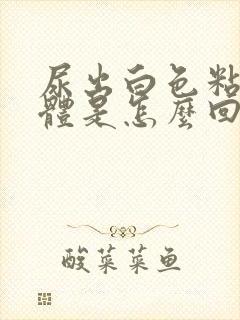 尿出白色粘
體是怎麼回
酸菜菜鱼